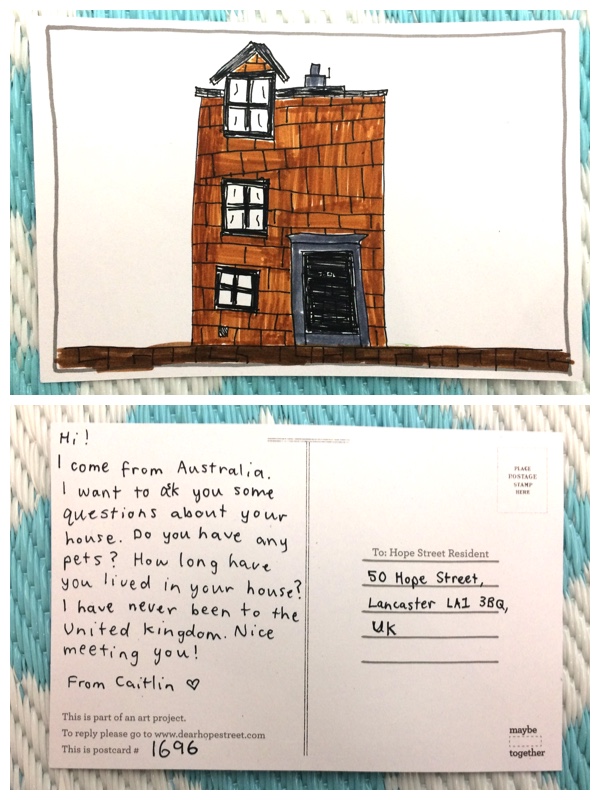 Hi!
I come from Australia.
I want to ask you some
questions about your
house. Do you have any
pets? How long have
you lived in your house?
I have never been to the
United Kingdom. Nice
meeting you!
From Caitlin ♡
This is part of an art project.
To reply please go to www.dearhopestreet.com
This is postcard # 1696
PLACE
POSTAGE
STAMP
HERE
To: Hope Street Resident
50 Hope Street,
Lancaster LA1 3BQ,
UK
maybe
together